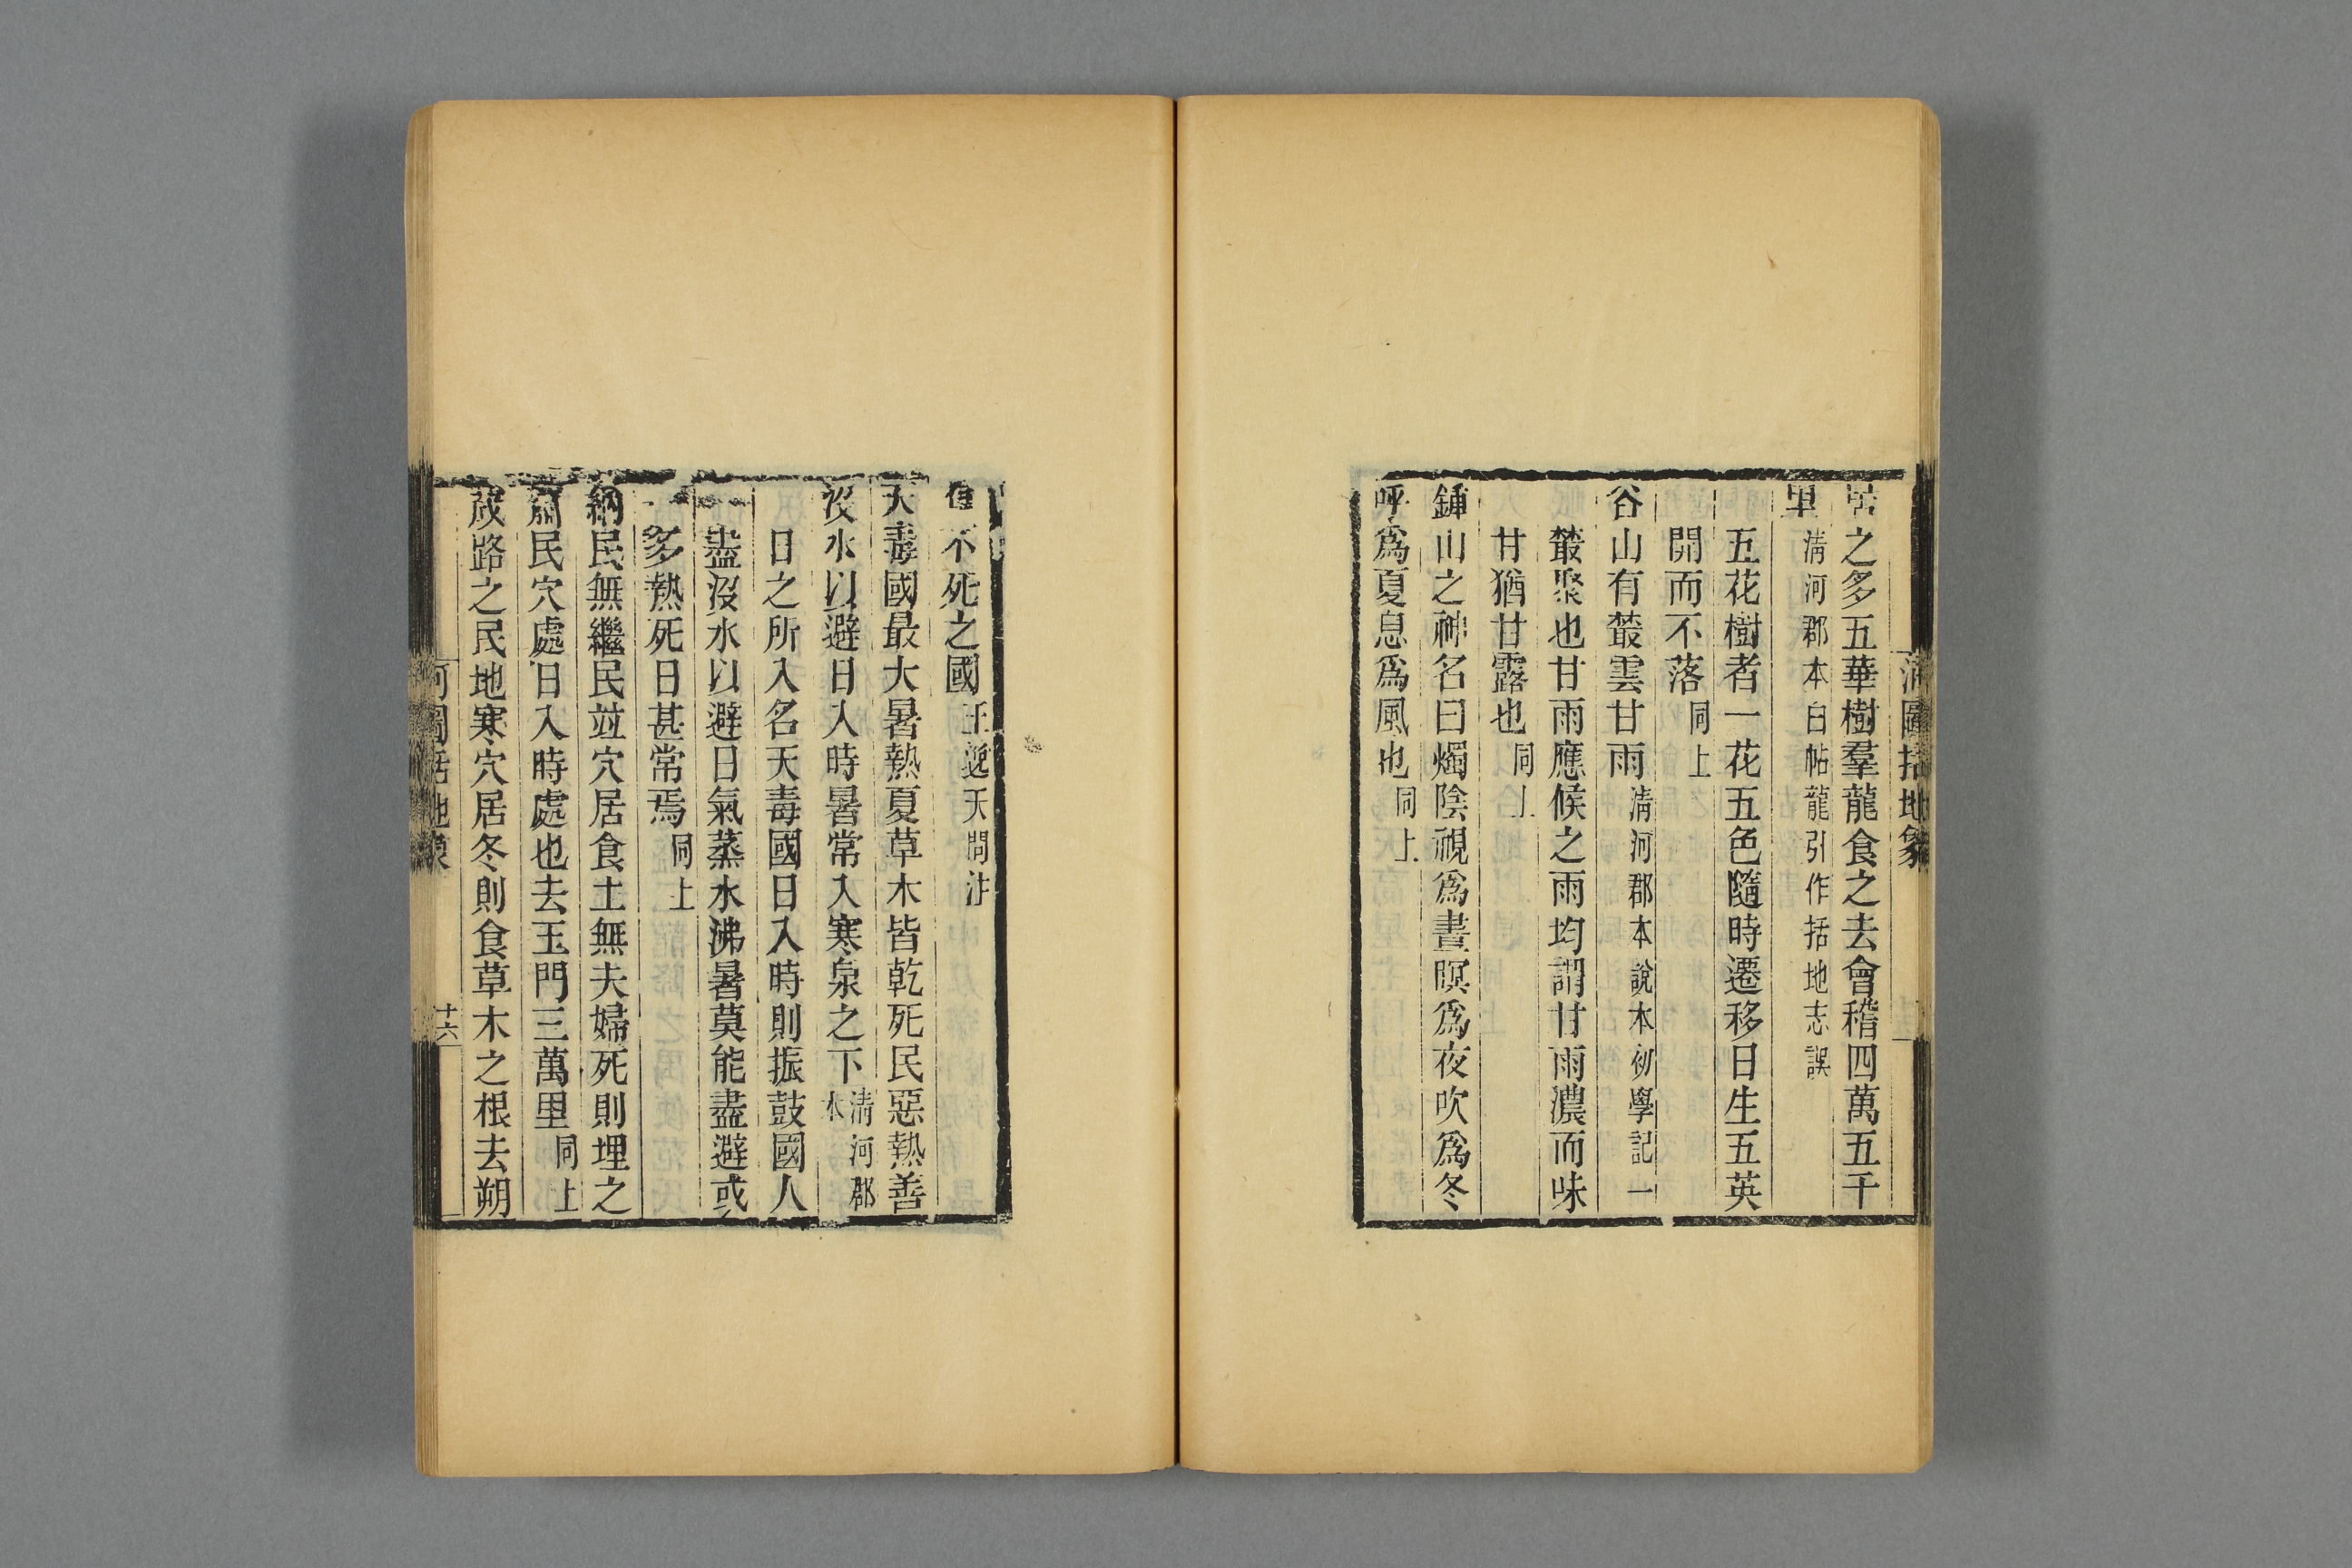 河圖括地象
之多五華樹羣龍食之去會稽四萬五千
里清河郡本白帖龍引作括地志誤
五花樹者一花五色隨時遷移日生五英
開而不落同上
谷山有蘩雲甘雨清河郡本說本初學記一
蘩聚也甘雨應候之雨均謂甘雨濃而味
甘猶甘露也同上
鍾山之神名曰燭陰視爲晝瞑爲夜吹爲冬
呼爲夏息爲風也同上
有不死之國王逸天問注
天毒國最大暑熱夏草木皆乾死民惡熱善
沒水以避日入時暑常入寒泉之下清河郡本
日之所入名天毒國日入時則振鼓國人
盡沒水以避日氣蒸水沸暑莫能盡避或
多熱死日甚常焉同上
納民無繼民竝穴居食土無夫婦死則埋之
民穴處日入時處也去玉門三萬里同上
路之民地寒穴居冬則食草木之根去朔
河圖括地象
十六